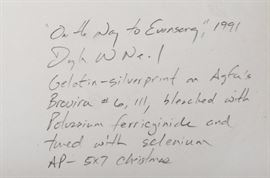 "On the Way to Evensong," 1991
Gelatin-silver print on Agfa's
Brovira #6, 111, bleached with
Potassium ferricyinide and
toned with selenium
AP- 5x7 Christmas